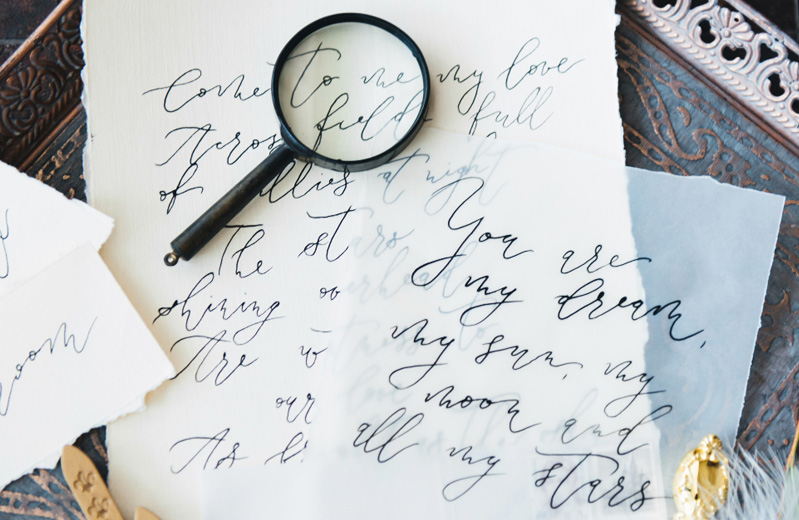 Come to me my love
Across fields full
of lillies at night
The stars
shining overhead
Are witness to
our love
As
You are
my dream,
my sun, my
moon and
all my stars
room